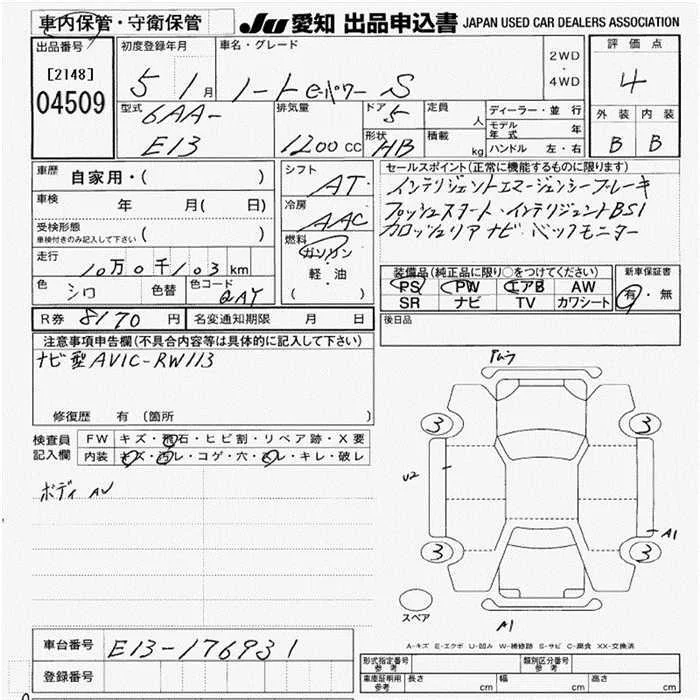 車内保管・守衛保管
JU 愛知 出品申込書 JAPAN USED CAR DEALERS ASSOCIATION
出品番号
[2148]
04509
初度登録年月
5 1月
車名・グレード
ノート e-パワー S
2WD
・
4WD
評価点
4
外装 内装
B B
型式
6AA-
E13
排気量
1200 CC
ドア 5
形状 HB
定員 人
積載 kg
ディーラー・並行
モデル年式 年
ハンドル 左・右
車歴 自家用・( )
車検 年 月( 日)
受検形態
車検付きのみ記入して下さい ( )
走行 10万0千103km
色 シロ 色替 色コード QAY
シフト AT
冷房 AAC
燃料
ガソリン
軽・油
( )
セールスポイント(正常に機能するものに限ります)
インテリジェントエマージェンシーブレーキ
プッシュスタート・インテリジェントBSI
カロッツェリアナビ バックモニター
装備品(純正品に限り○をつけてください)
PS PW エアB AW
SR ナビ TV カワシート
新車保証書
有・無
R券 8170円 名変通知期限 月 日
後日品
注意事項申告欄(不具合内容等は具体的に記入して下さい)
ナビ型AVIC-RW113
修復歴 有 (箇所 )
検査員記入欄
FW キズ・飛石・ヒビ割・リペア跡・X要
内装 キズ・汚レ・コゲ・穴・スレ・キレ・破レ
ボディ AU
3 3
U2
A1
3 3
スペア
A1
A-キズ E-エクボ U-凹み W-補修跡 S-サビ C-腐食 XX-交換済
車台番号 E13-176931
登録番号
形式指定番号 参考 類別区分番号 参考
車庫証明用 参考 長さ cm 幅 cm 高さ cm